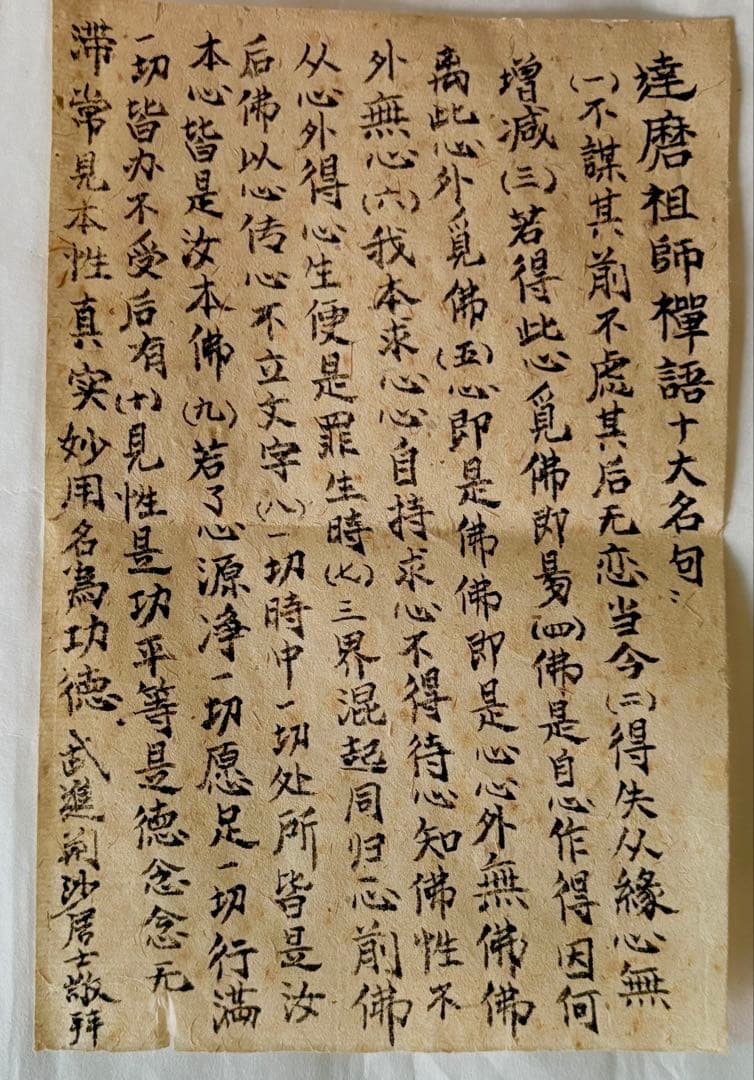 達磨祖師禪語十大名句:
(一)不謀其前不虑其后无恋当今(二)得失从緣心無
增减(三)若得此心覓佛即易(四)佛是自心作得因何
离此心外覓佛(五)心即是佛佛即是心心外無佛佛
外無心(六)我本求心心自持求心不得待心知佛性不
从心外得心生便是罪生時(七)三界混起同归一心前佛
后佛以心传心不立文字(八)一切時中一切处所皆是汝
本心皆是汝本佛(九)若了心源净一切愿足一切行满
一切皆办不受后有(十)見性是功平等是德念念无
滞常見本性真实妙用名為功德 武進荆沙居士敬拜